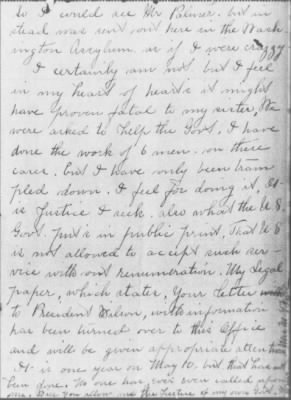 So I would see Mr Palmer. but in
stead was sent out here in the Wash
ington Assylum. as if I were crazzy
I certainly am not. but I feel
in my heart of heart's it might
have proven fatal to my sister, We
were asked to help the Govt. I have
done the work of 6 men. on these
cases. but I have only been tram
pled down. I feel for doing it, It
is Justice I seek. also what the U S
Govt. puts in public print. That U S
is not allowed to accept such ser-
vice with out renumeration. My legal
paper, which states, Your letter
to President Wilson, with information
has been turned over to this Office
and will be given appropriate attention
It is one year on May 10. but that have
been done. No one has ever even called upon
me. you allow me the Justice of my own